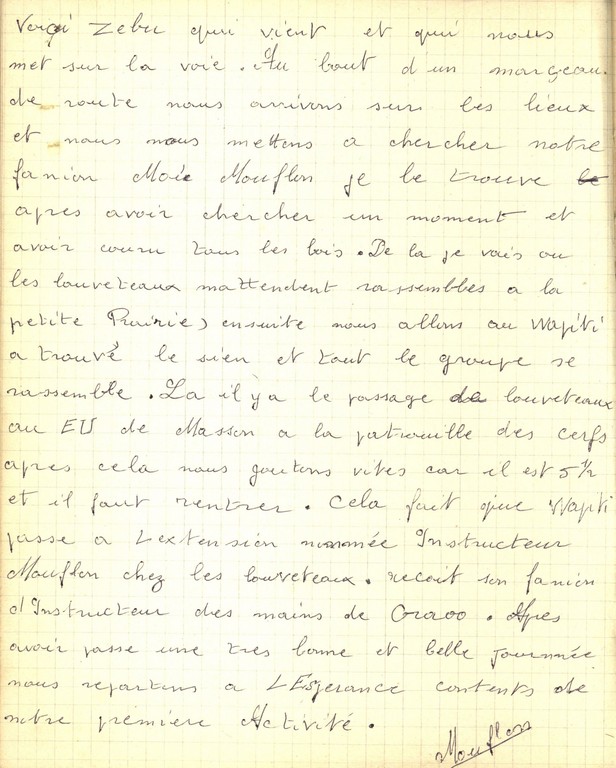 Voiçi Zebu qui vient et qui nous
met sur la voie. Au bout d'un morçeau
de route nous arrivons sur les lieux
et nous nous mettons a chercher notre
fanion Moi Mouflon je le trouve le
apres avoir chercher un moment et
avoir couru tous les bois. De la je vais ou
les louveteaux mattendent rassembles a la
petite Prairie) ensuite nous allons au Wapiti
a trouvé le sien et tout le groupe se
rassemble. La il y a le passage de louveteaux
au EU de Masson a la patrouille des cerfs
apres cela nous goutons vites car il est 5 1/2
et il faut rentrer. Cela fait que Wapiti
passe a Lextension nommée Instructeur
Mouflon chez les louveteaux. recoit son fanion
d'Instructeur des mains de Oraoo. Apres
avoir passe une tres bonne et belle Journnée
nous repartons a L'Esperance contents de
notre premiere Activité.
Mouflon